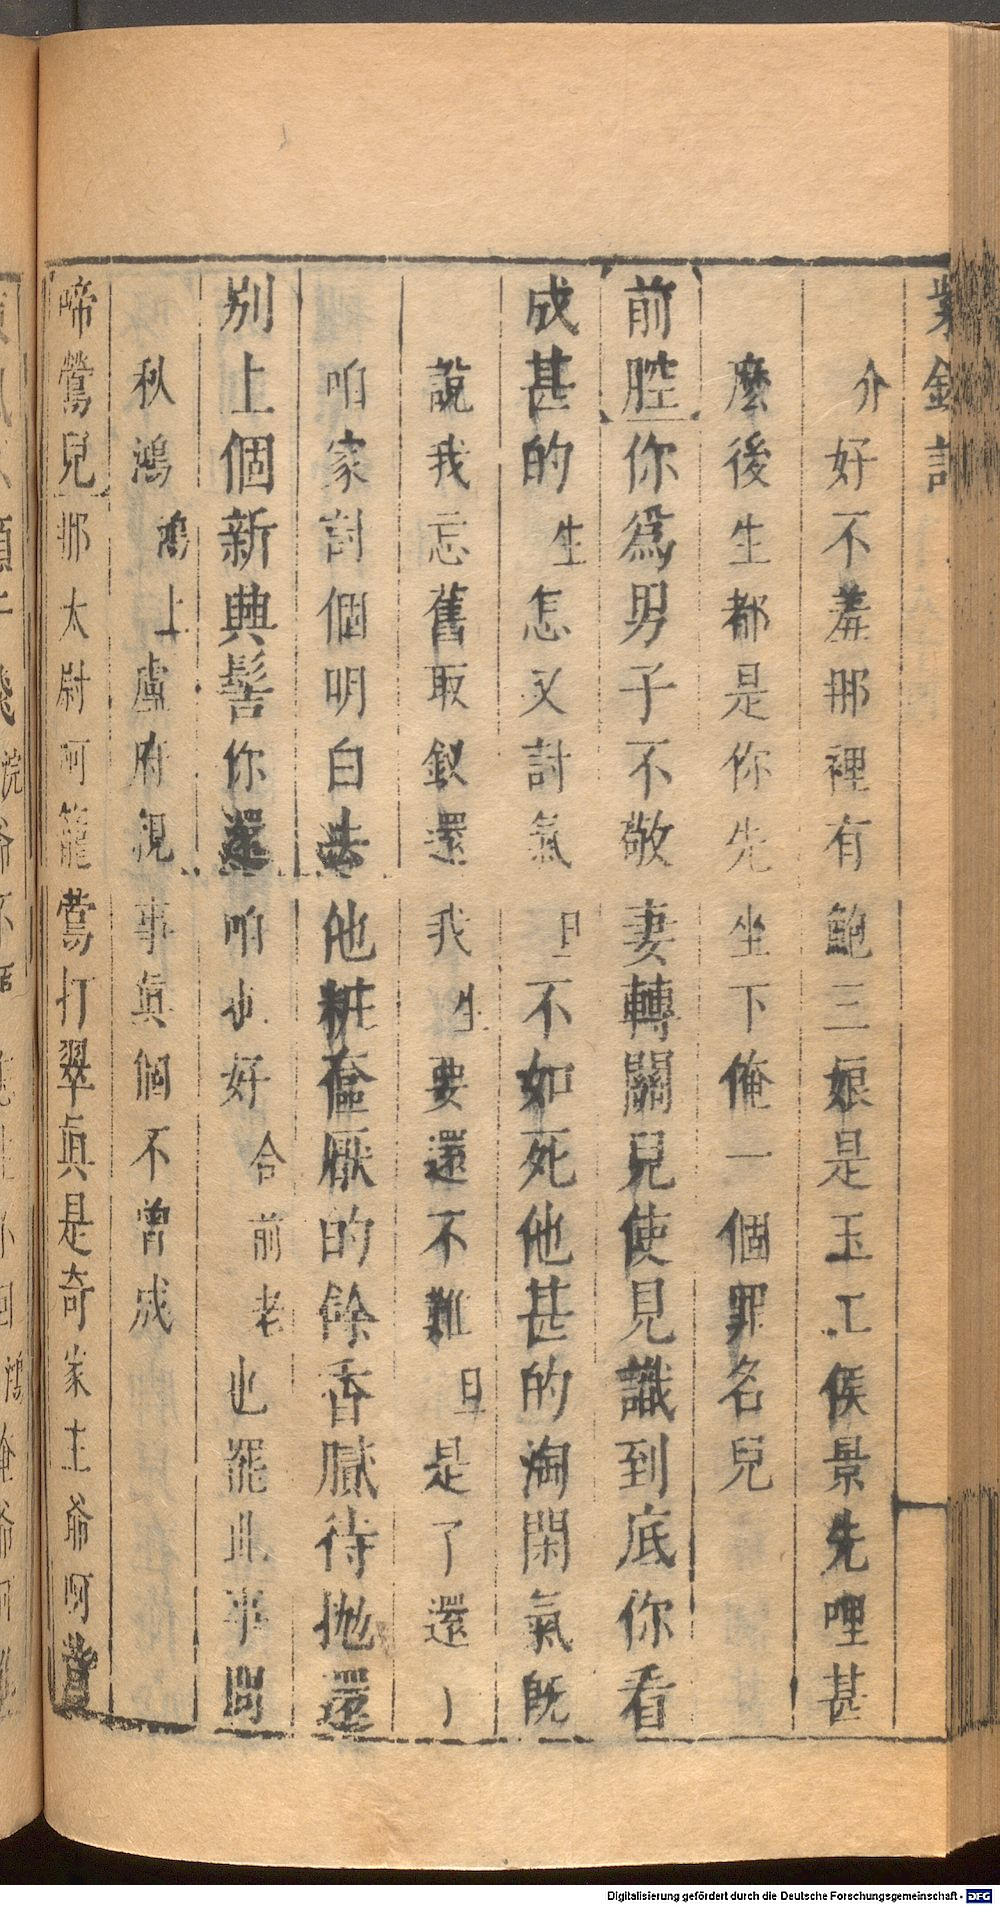 紫釵記
介好不羞那裡有鮑三娘是玉工侯景先哩甚
麼後生都是你先坐下俺一個罪名兒
前腔你爲男子不敬妻轉關兒使見識到底你看
成甚的生怎又討氣旦不如死他甚的淘閑氣旣
說我忘舊取釵還我生要還不難旦是了還了
咱家討個明白去他粧奩厭的餘香膩待拋還
別上個新興髻你還咱也好合前老也罷此事問
秋鴻鴻上盧府親事眞個不曾成
啼鶯兒那太尉呵籠鶯打翠眞是奇家主爺呵
Digitalisierung gefördert durch die Deutsche Forschungsgemeinschaft - DFG